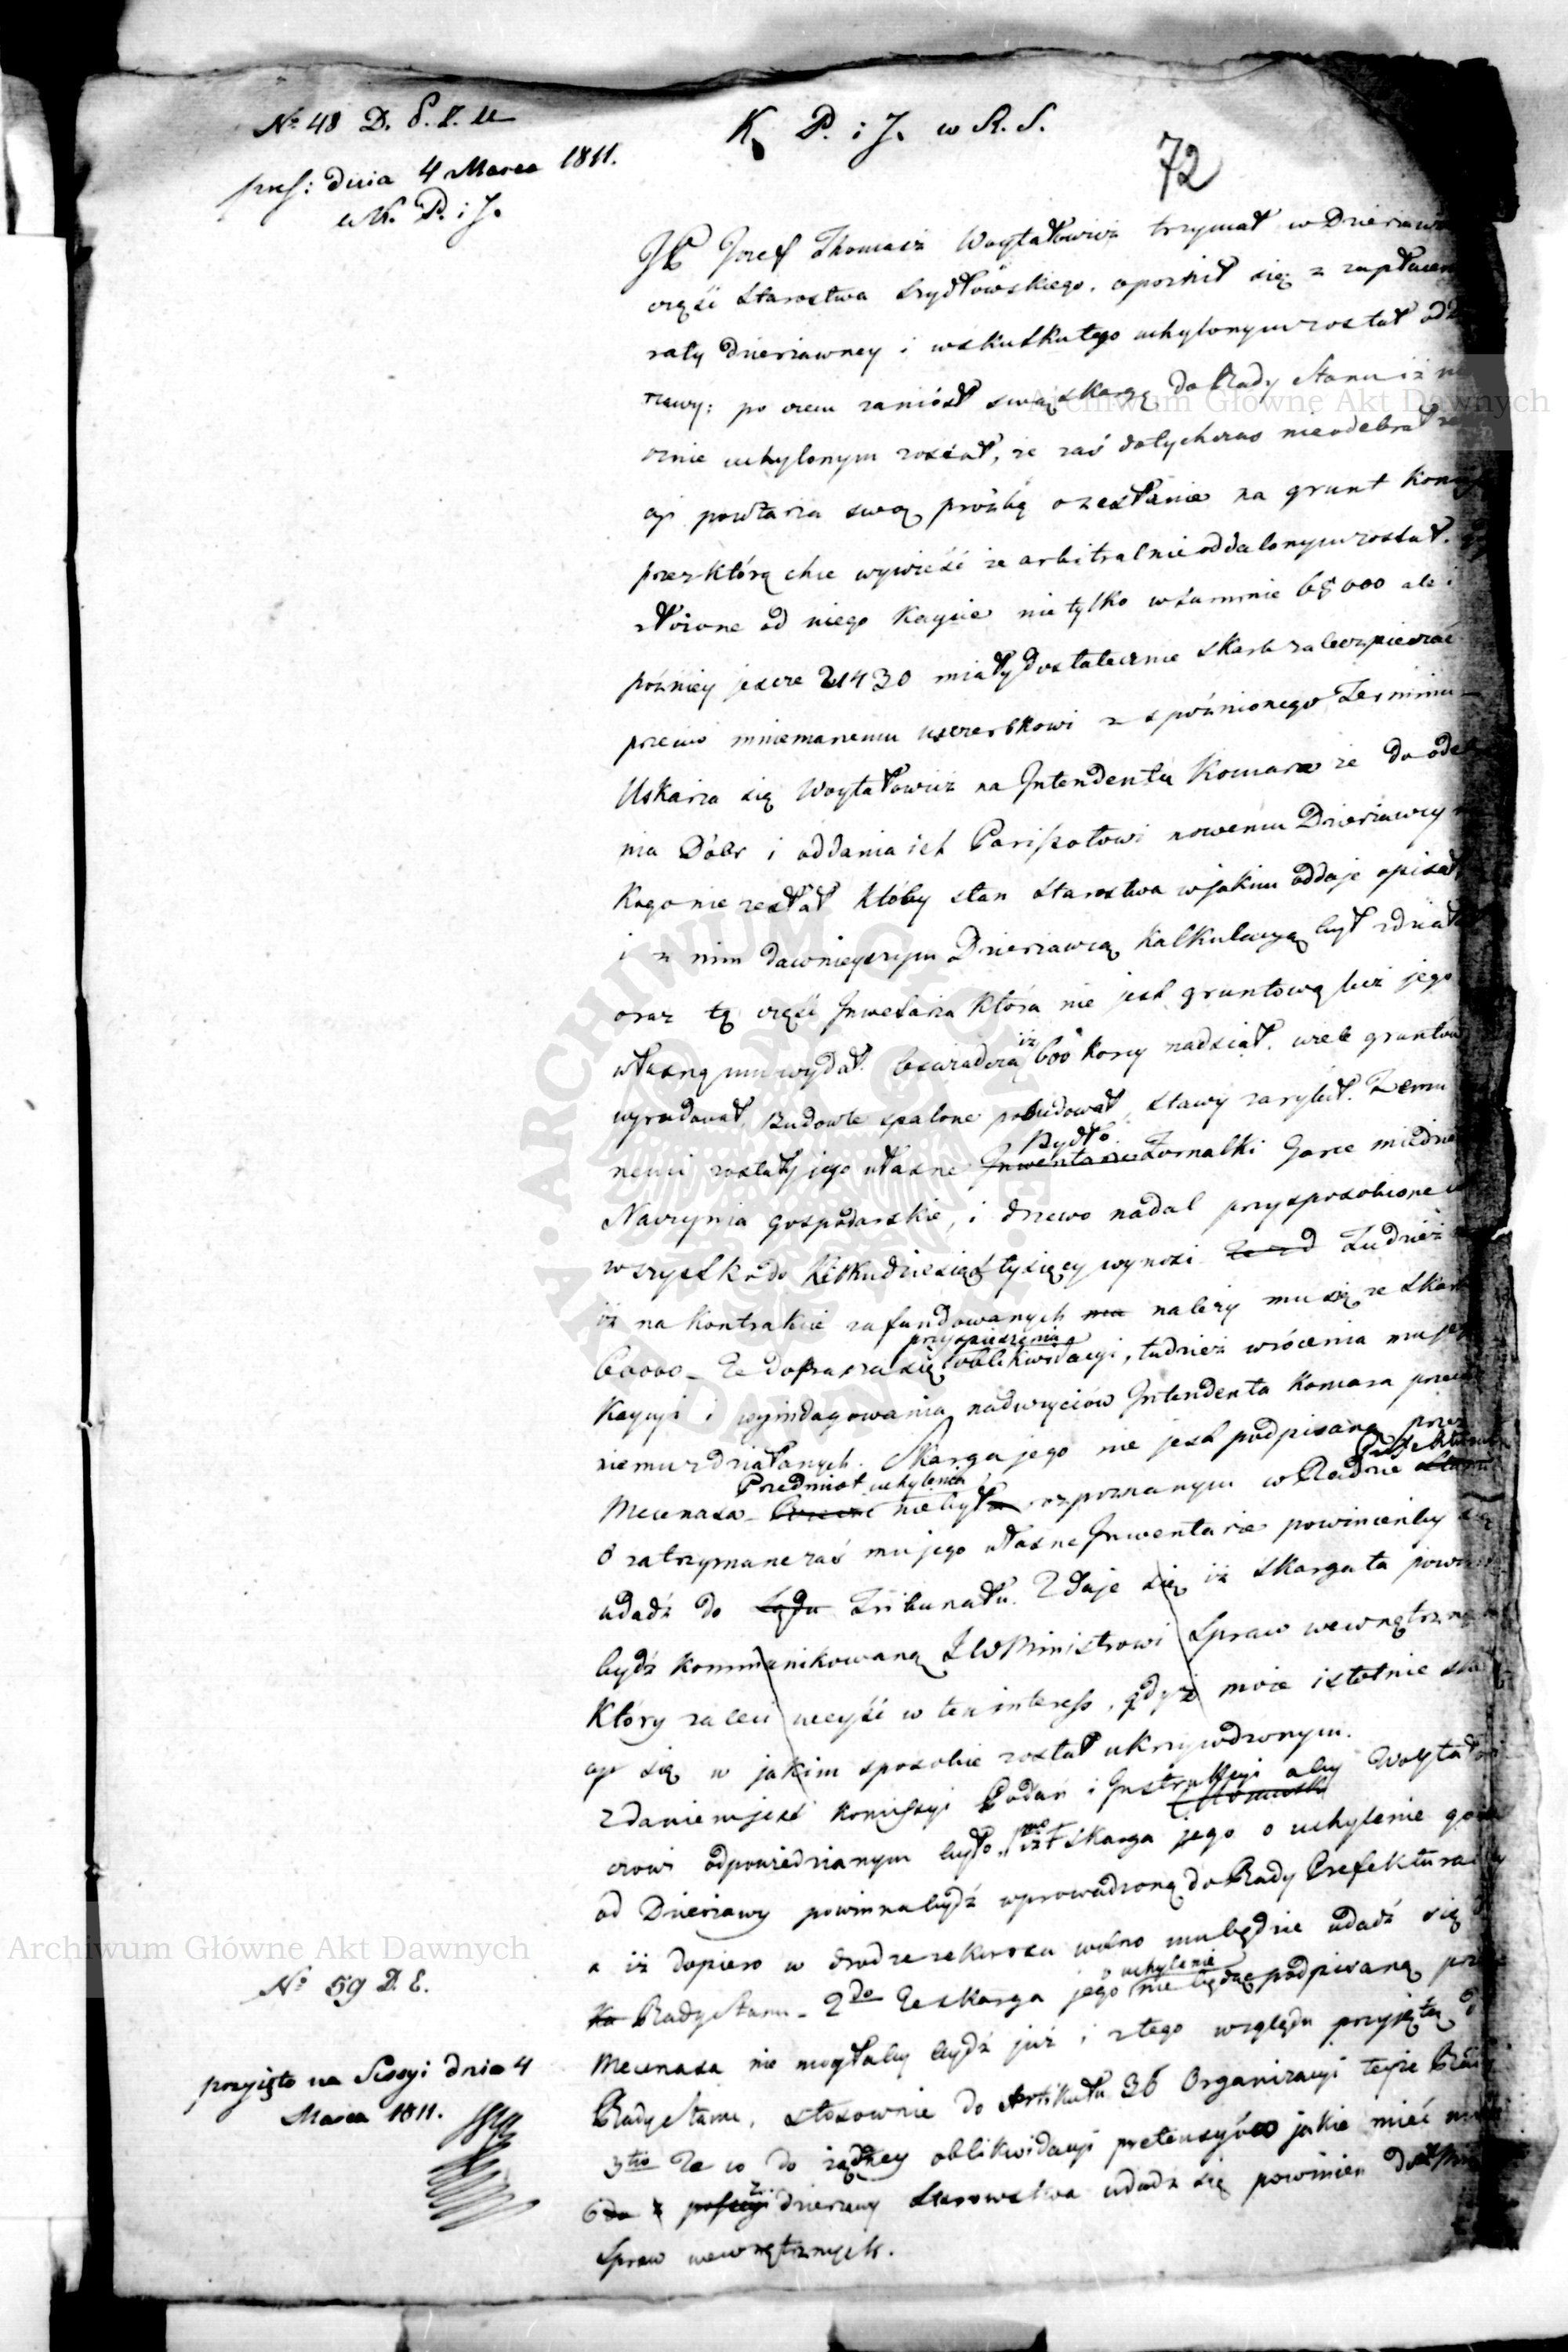 No 48 D. P. L. U
pres: dnia 4 Marca 1811.
w K. P. i J.
K P. i J. w R. S.
72
JP Jozef Thomasz Woytałowicz trzymał w Dzierzaw
część Starostwa Szydłowskiego, opoźnił się z zapłacen
raty dzierzawney i w skutku tego uchylonym został od
rzawy: po czem zaniósł swą skargę do Rady Stanu iż
cznie uchylonym został, że zaś dotychczas nieodebrał
powtarza swoą prozbę o zesłanie na grunt Kom
przez którą chce wywieść ze arbitralnie oddalonym został.
złożone od niego Kaycie nie tylko w summie 68000 ale i
pózniey jescze 21430 miały dostatecznie skarb zabezpieczać
przeciw mniemanemu uszczerbkowi z spóżnionego Terminu
Uskarża się Woytałowicz na Intendenta Komara ze do ode
nia Dóbr i oddania ich Parissotowi nowemu Dzierzawcy
kogo nie zesłał któby stan Starostwa w jakim oddaje opisał,
i z nim dawnieyszym Dzierzawcą kalkulacyą był zdział
oraz tę część Inwetarza która nie jest gruntową lecz jego
własną mu wydał. Oswiadcza iż 600 korcy nadsiał, wiele gruntów
wyrudował, Budowle spalone pobudował, stawy zarybił. Zemu
nemi zostały jego własne Inwentarze Bydło Fornalki Garce miedzi
Naczynia gospodarskie, i drzewo nadal przysposobione
wszystko do kilkudziesiąt tysięcy wynosi Ze zd Tudzież
iż na kontrakcie zafundowanych ma należy mu się ze Skar
60000 – Ze doprasza się przyspieszenia oblikwidacyi, tudzież wrócenia mu je
Kaycyi i wyindagowania nadużyciów Intendenta Komara prze
niemu zdziałanych. Skarga jego nie jest podpisaną przez
Mecenasa – Przedmiot uchylenia nie był rozpoznanym w Radzie Prefekturalney
o zatrzymane zaś mu jego własne Inwentarze powinienby się
udadź do Sądu Tribunału. Zdaje się iż skarga ta powin
bydź kommunikowaną JW Ministrowi Spraw wewnętrznych
Który zaleci weyść w ten interess, gdyż może istotnie
się w jakim sposobie został ukrzywdzonym.
Zdaniem jest Komissyi Podań i Instrukcyi aby Woytało
czowi odpowiedzianym było, 1mo iż skarga jego o uchylenie go
od Dzierzawy powinna bydź wprowadzoną do Rady Prefekturalney
a iż dopiero w drodze rekursu wolno mu będzie udadź się
Rady Stanu – 2do Ze skarga jego o uchylenie nie będąc podpisaną prze
Mecenasa nie mogłaby bydź już i z tego względu przyjętą
Rady Stanu, stosownie do Artikułu 36 Organizacyi teyże Rady
3tio Ze co do żądney oblikwidacyi pretensyów jakie mieć
z dzierzawy Starowstwa udadź się powinien do Min
Spraw wewnętrznych.
No 59 D. E.
przyięto na Sessyi dnia 4
Marca 1811.
Archiwum Główne Akt Dawnych
Archiwum Główne Akt Dawnych
ARCHIWUM GŁÓWNE AKT DAWNYCH